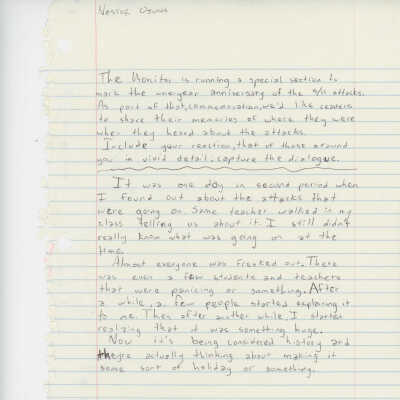 The Monitor is running a special section to
mark the one-year anniversary of the 9/11 attacks.
As part of that, commemoration, we'd like readers
to share their memories of where they were
when they heard about the attacks.
Include your reaction, that of those around
you in vivid detail. Capture the dialogue.
It was one day in second period when
I found out about the attacks that
were going on. Some teacher walked in my
class telling us about it. I still didn't
really know what was going on at the
time.
Almost everyone was freaked out. There
was even a few students and teachers
that were panicing or something. After
a while, a few people started explaining it
to me. Then after another while, I started
realizing that it was something huge.
Now it's being considered history and
they're actually thinking about making it
some sort of holiday or something.